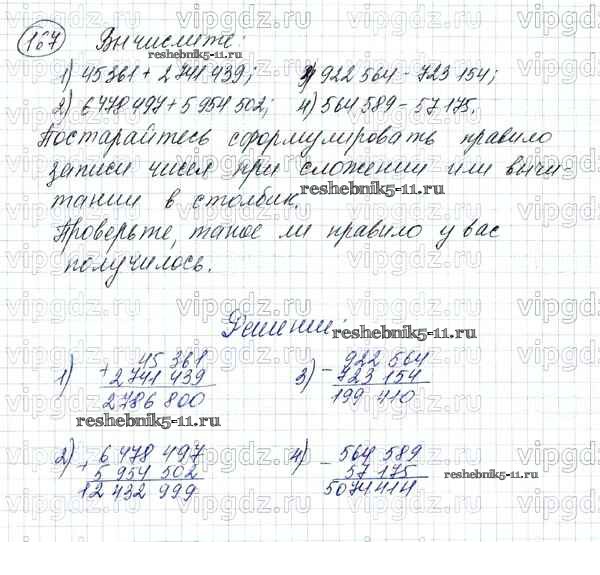 167 Вычислите:
1) 45 361 + 2 741 439; 3) 922 564 - 723 154;
2) 6 478 497 + 5 954 502; 4) 564 589 - 57 175.
Постарайтесь сформулировать правило
записи чисел при сложении или вычи-
тании в столбик.
Проверьте, такое ли правило у вас
получилось.
Решение:
1) + 45 361
2 741 439
2 786 800
3) - 922 564
723 154
199 410
2) + 6 478 497
5 954 502
12 432 999
4) - 564 589
57 175
5074414
reshebnik5-11.ru
reshebnik5-11.ru
reshebnik5-11.ru
reshebnik5-11.ru
reshebnik5-11.ru
vipgdz.ru